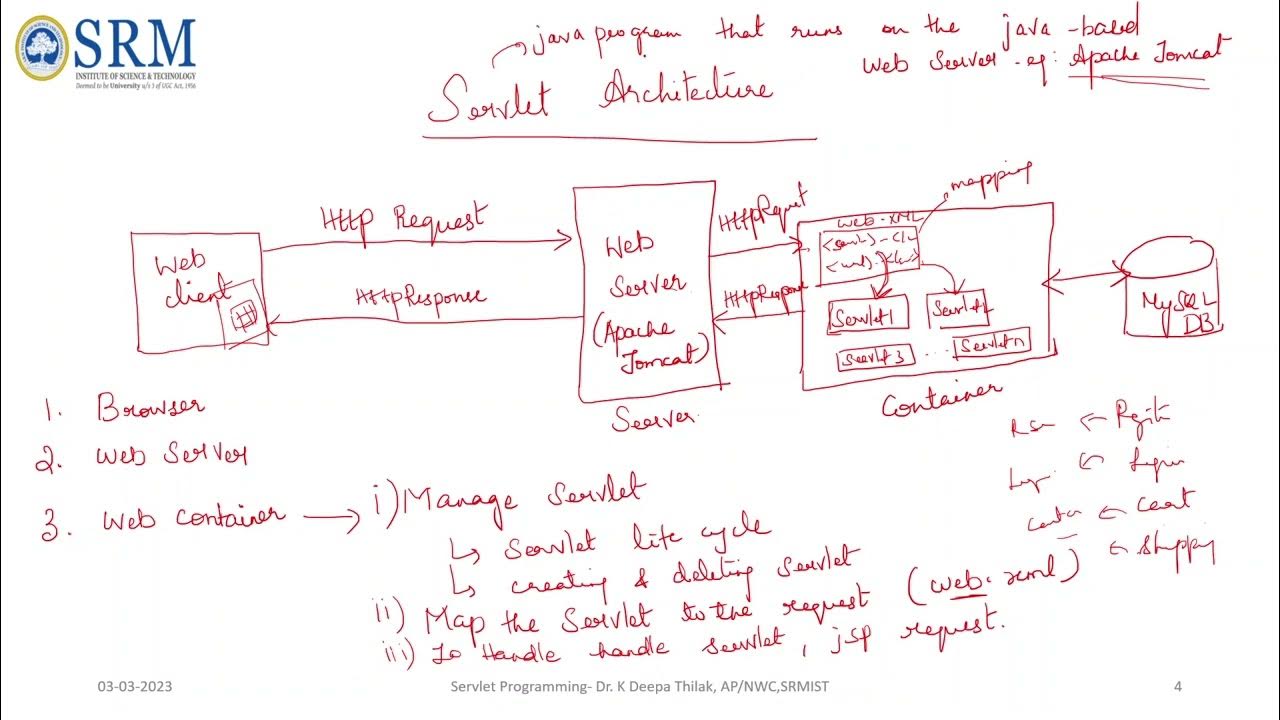 SRM
INSTITUTE OF SCIENCE & TECHNOLOGY
Deemed to be University u/s 3 of UGC Act, 1956
java program that runs on the java-based
web Server - eg: Apache Tomcat
Servlet Architecture
mapping
Http Request
Http Request
web.XML
Web
client
Web
Server
(Apache
Tomcat)
Http Response
Http Response
Servlet1
Servlet2
Servlet3 ... Servlet n
MySQL
DB
Server
Container
1. Browser
2. Web Server
3. Web Container → i) Manage Servlet
↳ Servlet life cycle
↳ creating & deleting Servlet
ii) Map the Servlet to the request (web.xml)
iii) To Handle handle servlet, jsp request.
← Login
← Shipping
03-03-2023
Servlet Programming- Dr. K Deepa Thilak, AP/NWC,SRMIST
4